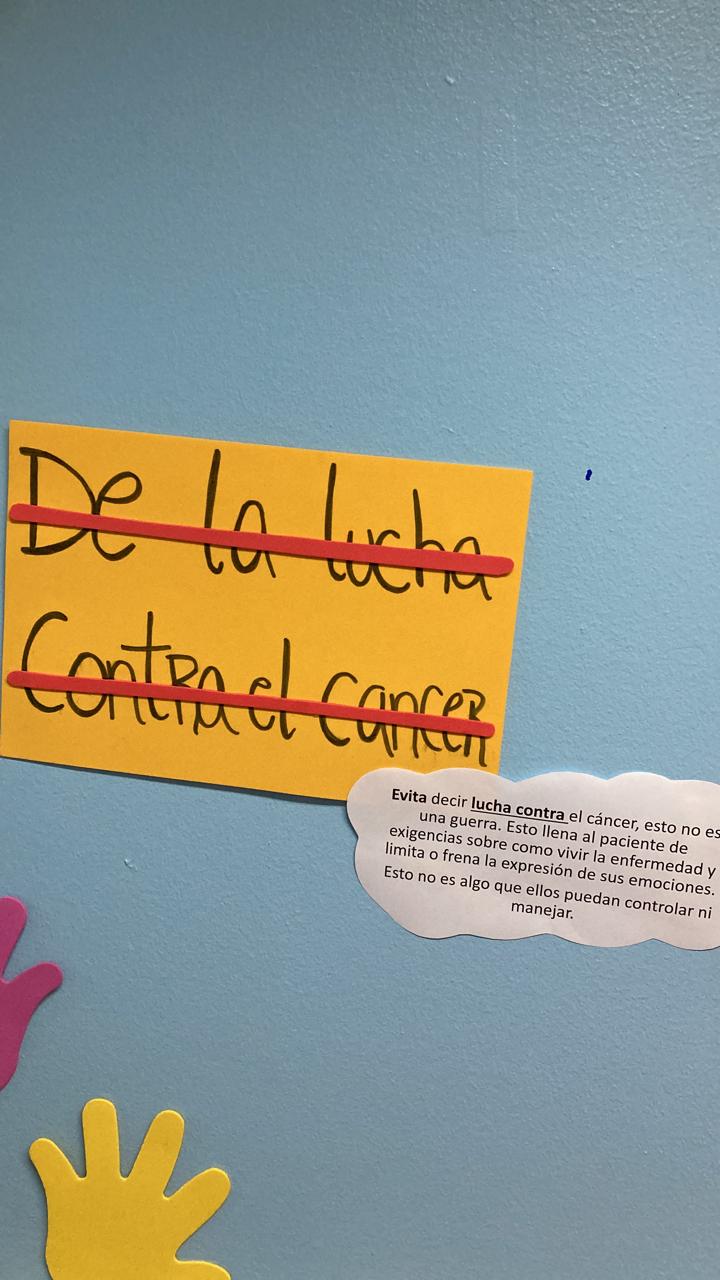 De la lucha
Contra el cancer
Evita decir lucha contra el cáncer, esto no es
una guerra. Esto llena al paciente de
exigencias sobre como vivir la enfermedad y
limita o frena la expresión de sus emociones.
Esto no es algo que ellos puedan controlar ni
manejar.